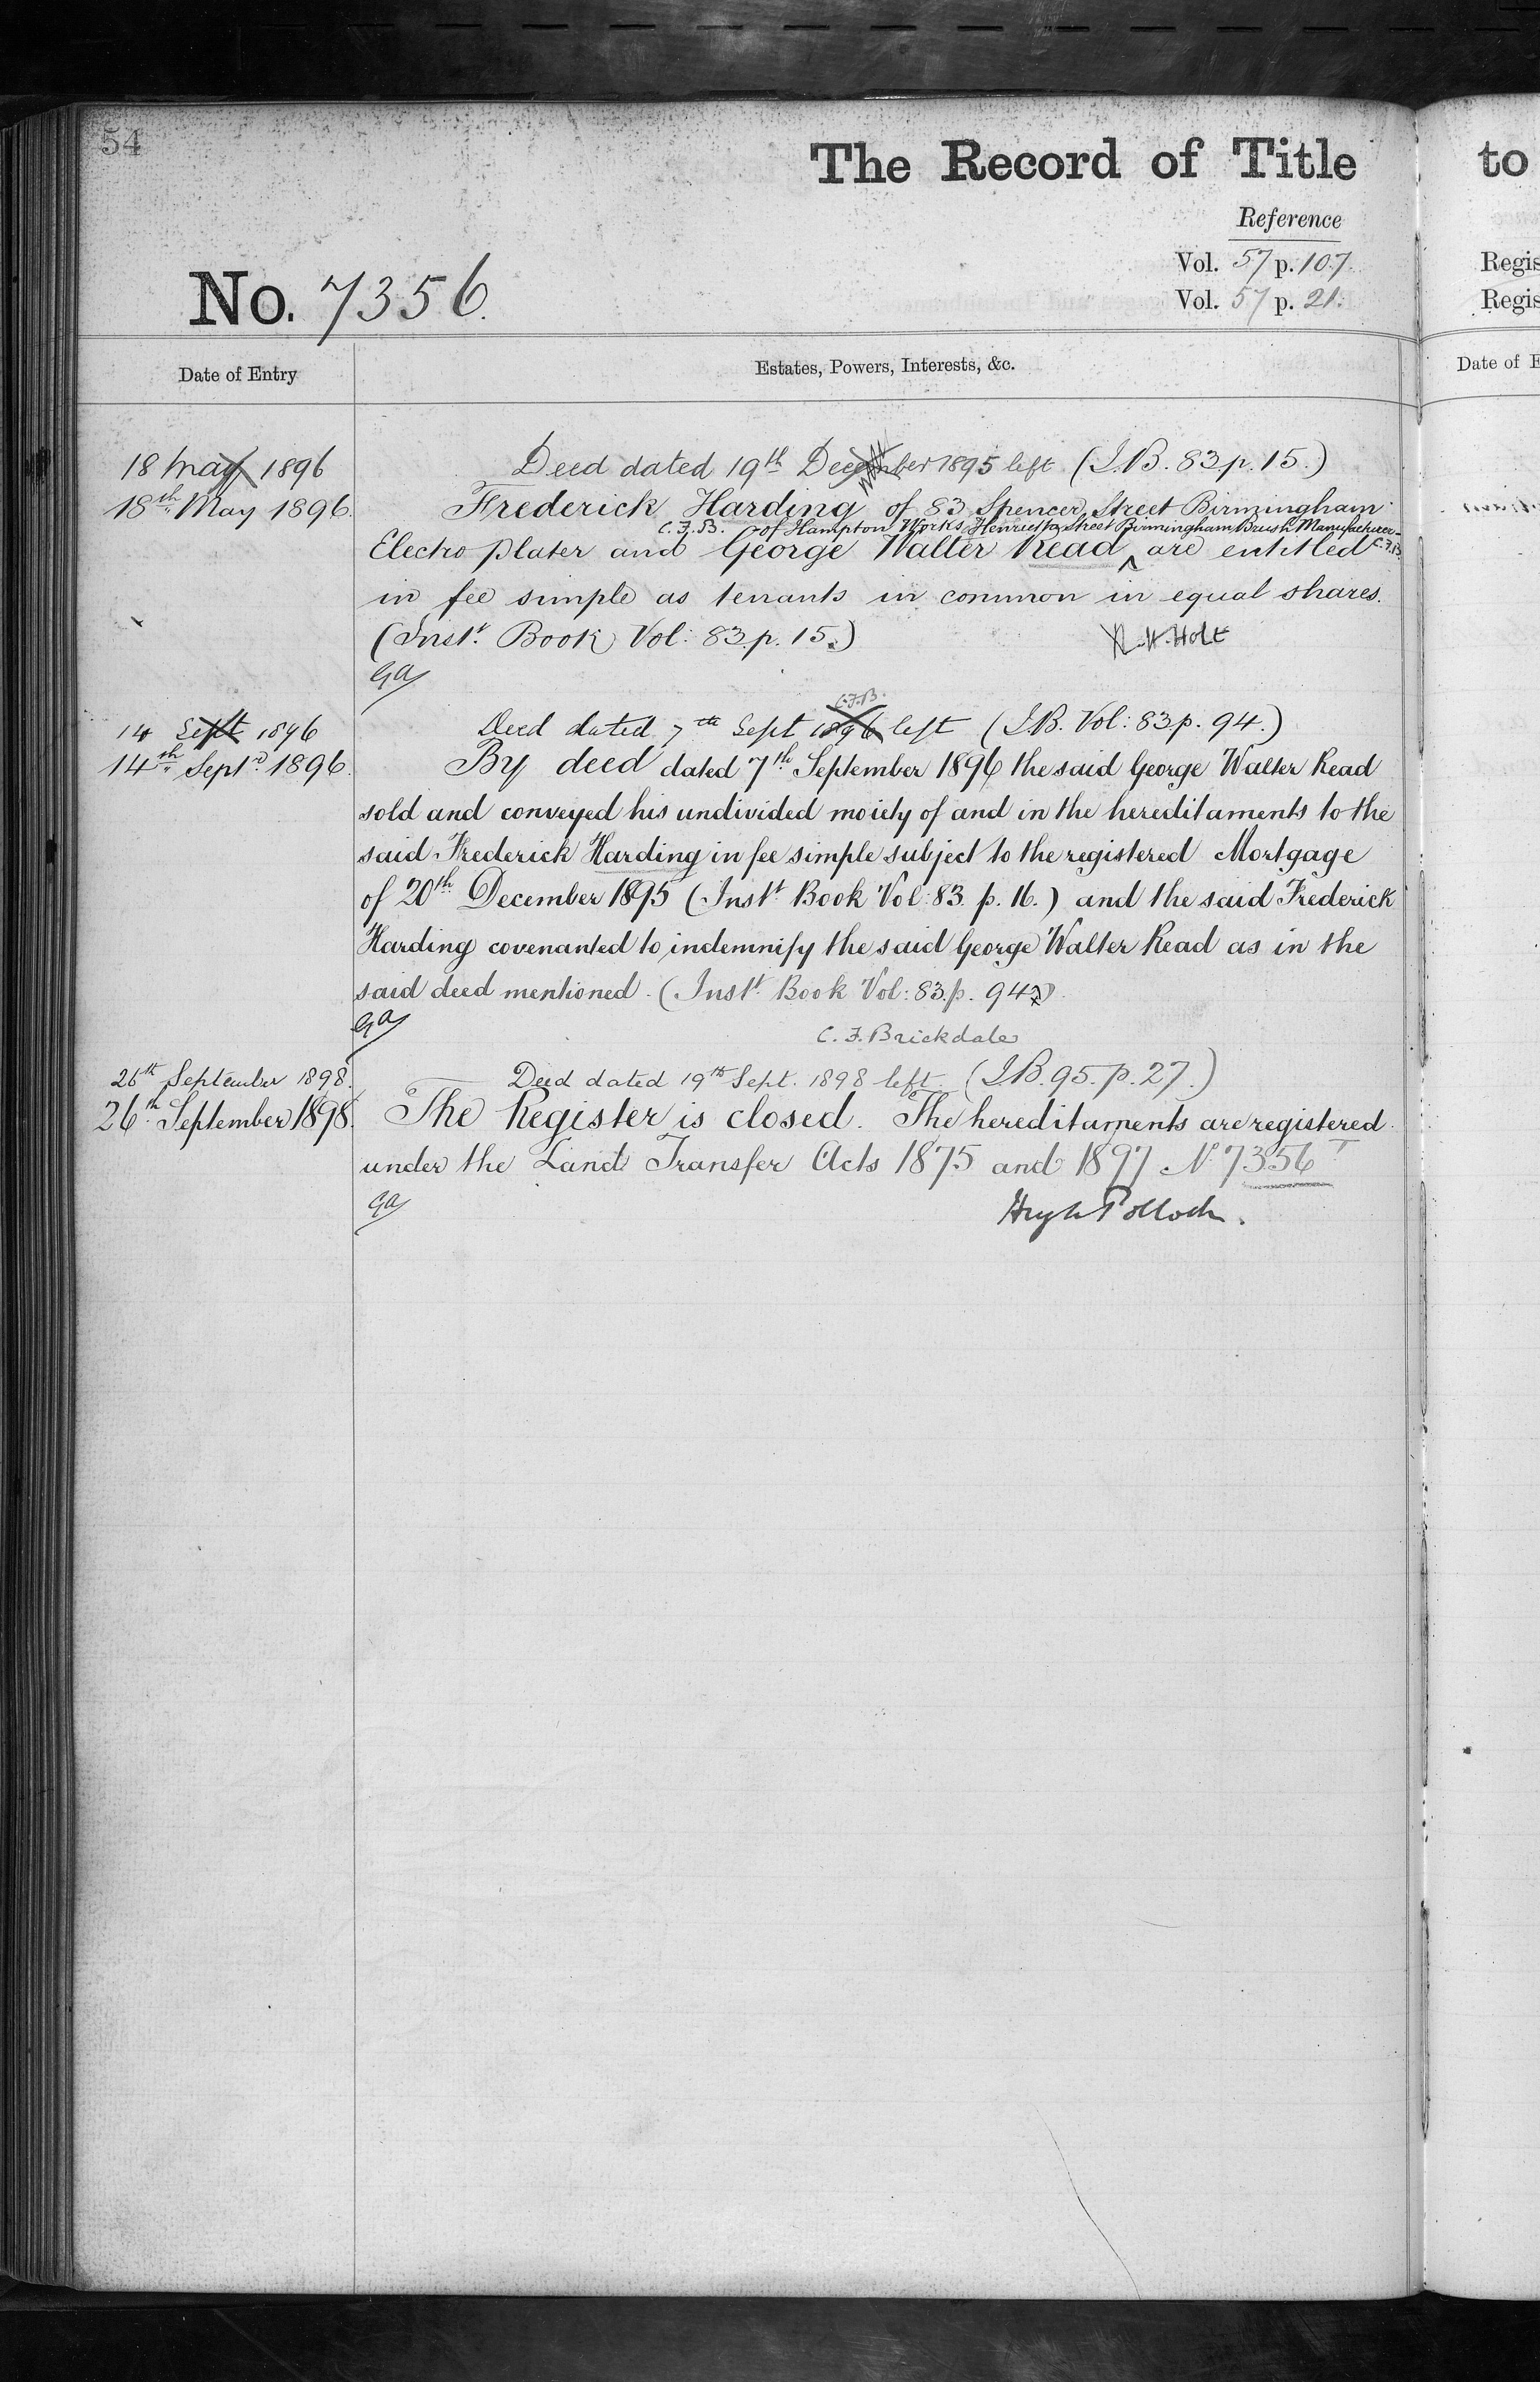 54
The Record of Title
to
Reference
Vol. 57 p. 107.
Vol. 57 p. 21.
Regis
Regis
No. 7356.
Date of Entry
Estates, Powers, Interests, &c.
Date of E
18 May 1896
Deed dated 19th December 1895 left (I.B. 83 p. 15.)
18th May 1896.
Frederick Harding of 83 Spencer Street Birmingham
C.F.B. of Hampton Works Henrietta Street Birmingham Brush Manufacturer C.F.B.
Electro plater and George Walter Read ^ are entitled
in fee simple as tenants in common in equal shares.
(Inst. Book Vol: 83. p. 15.)
R. H. Holt
GA
C.F.B.
14 Sept 1896
Deed dated 7th Sept 1896 left (I.B. Vol: 83 p. 94.)
14th Septr 1896.
By deed dated 7th September 1896 the said George Walter Read
sold and conveyed his undivided moiety of and in the hereditaments to the
said Frederick Harding in fee simple subject to the registered Mortgage
of 20th December 1895 (Inst. Book Vol: 83. p. 16.) and the said Frederick
Harding covenanted to indemnify the said George Walter Read as in the
said deed mentioned. (Inst. Book Vol: 83. p. 94)
GA
C. F. Brickdale
26th September 1898.
Deed dated 19th Sept. 1898 left. (I.B. 95. p. 27.)
26th September 1898.
The Register is closed. The hereditaments are registered
under the Land Transfer Acts 1875 and 1897 No 7356 T
GA
Hugh Pollock.